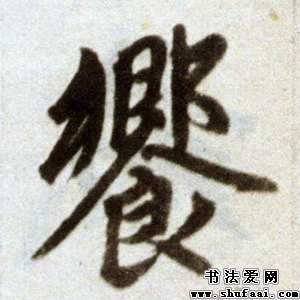 饗
书法爱网
www.shufaai.com